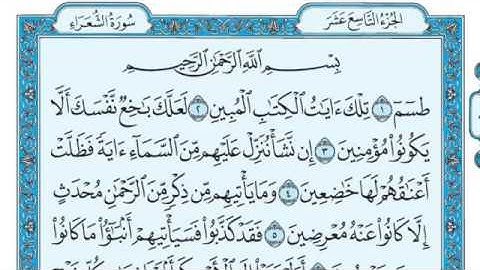 الجزء التاسع عشر
سورة الشعراء
بِسْمِ اللَّهِ الرَّحْمَٰنِ الرَّحِيمِ
طسٓمٓ ١ تِلْكَ ءَايَٰتُ ٱلْكِتَٰبِ ٱلْمُبِينِ ٢ لَعَلَّكَ بَٰخِعٌ نَّفْسَكَ أَلَّا
يَكُونُوا۟ مُؤْمِنِينَ ٣ إِن نَّشَأْ نُنَزِّلْ عَلَيْهِم مِّنَ ٱلسَّمَآءِ ءَايَةً فَظَلَّتْ
أَعْنَٰقُهُمْ لَهَا خَٰضِعِينَ ٤ وَمَا يَأْتِيهِم مِّن ذِكْرٍ مِّنَ ٱلرَّحْمَٰنِ مُحْدَثٍ
إِلَّا كَانُوا۟ عَنْهُ مُعْرِضِينَ ٥ فَقَدْ كَذَّبُوا۟ فَسَيَأْتِيهِمْ أَنۢبَٰٓؤُا۟ مَا كَانُوا۟